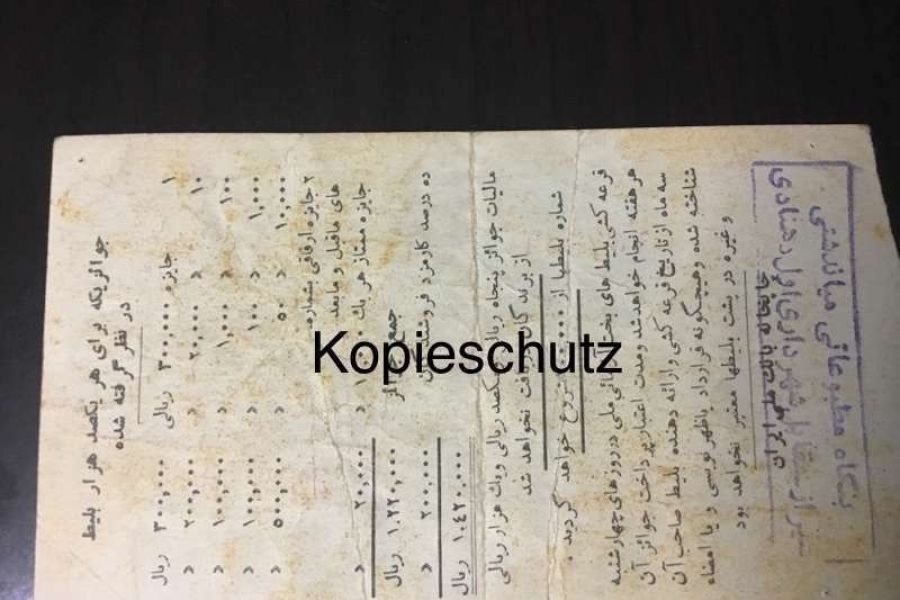 جوائزیکه برای هر یکصد هزار بلیط
در نظر گرفته شده
۱ جایزه ۳۰۰,۰۰۰ ریالی ۳۰۰,۰۰۰ ریال
۱۰ » ۲۰,۰۰۰ » ۲۰۰,۰۰۰ »
۱۰۰ » ۱,۰۰۰ » ۱۰۰,۰۰۰ »
۱,۰۰۰ » ۱۰۰ » ۱۰۰,۰۰۰ »
۱۰,۰۰۰ » ۵۰ » ۵۰۰,۰۰۰ »
۲ جایزه ارفاقی بشماره
های ماقبل و مابعد
جایزه ممتاز هر یک » ۲۰,۰۰۰ »
جمع ۱,۲۲۰,۰۰۰ ریال
ده درصد کارمزد ۲۰۰,۰۰۰ »
۱,۴۲۰,۰۰۰ ریال
مالیات جوائز پنجاه ریالی یکصد ریالی و یک هزار ریالی
از برندگان دریافت نخواهد شد
شماره بلیطها از شروع خواهد گردید.
قرعه کشی بلیط های بخت آزمائی ملی در روزهای چهارشنبه
هر هفته انجام خواهد شد و مدت اعتبار پرداخت جوائز آن
سه ماه از تاریخ قرعه کشی و ارائه دهنده بلیط صاحب آن
شناخته شده و هیچگونه قرارداد یا ظهر نویسی و یا امضاء
و غیره در پشت بلیطها معتبر نخواهد بود
بنگاه مطبوعاتی
Kopieschutz